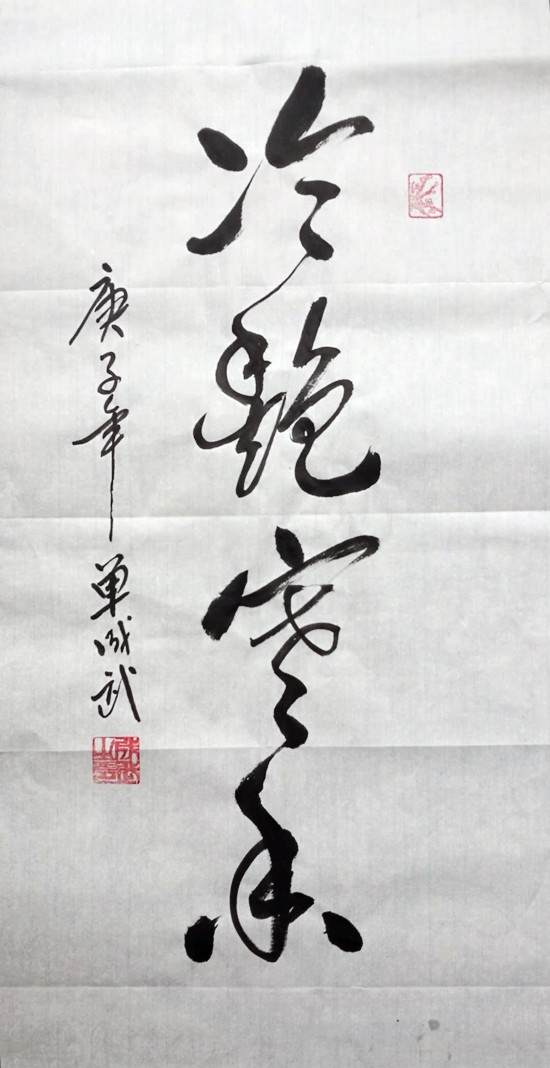 冷艳寒香
庚子年 单成武